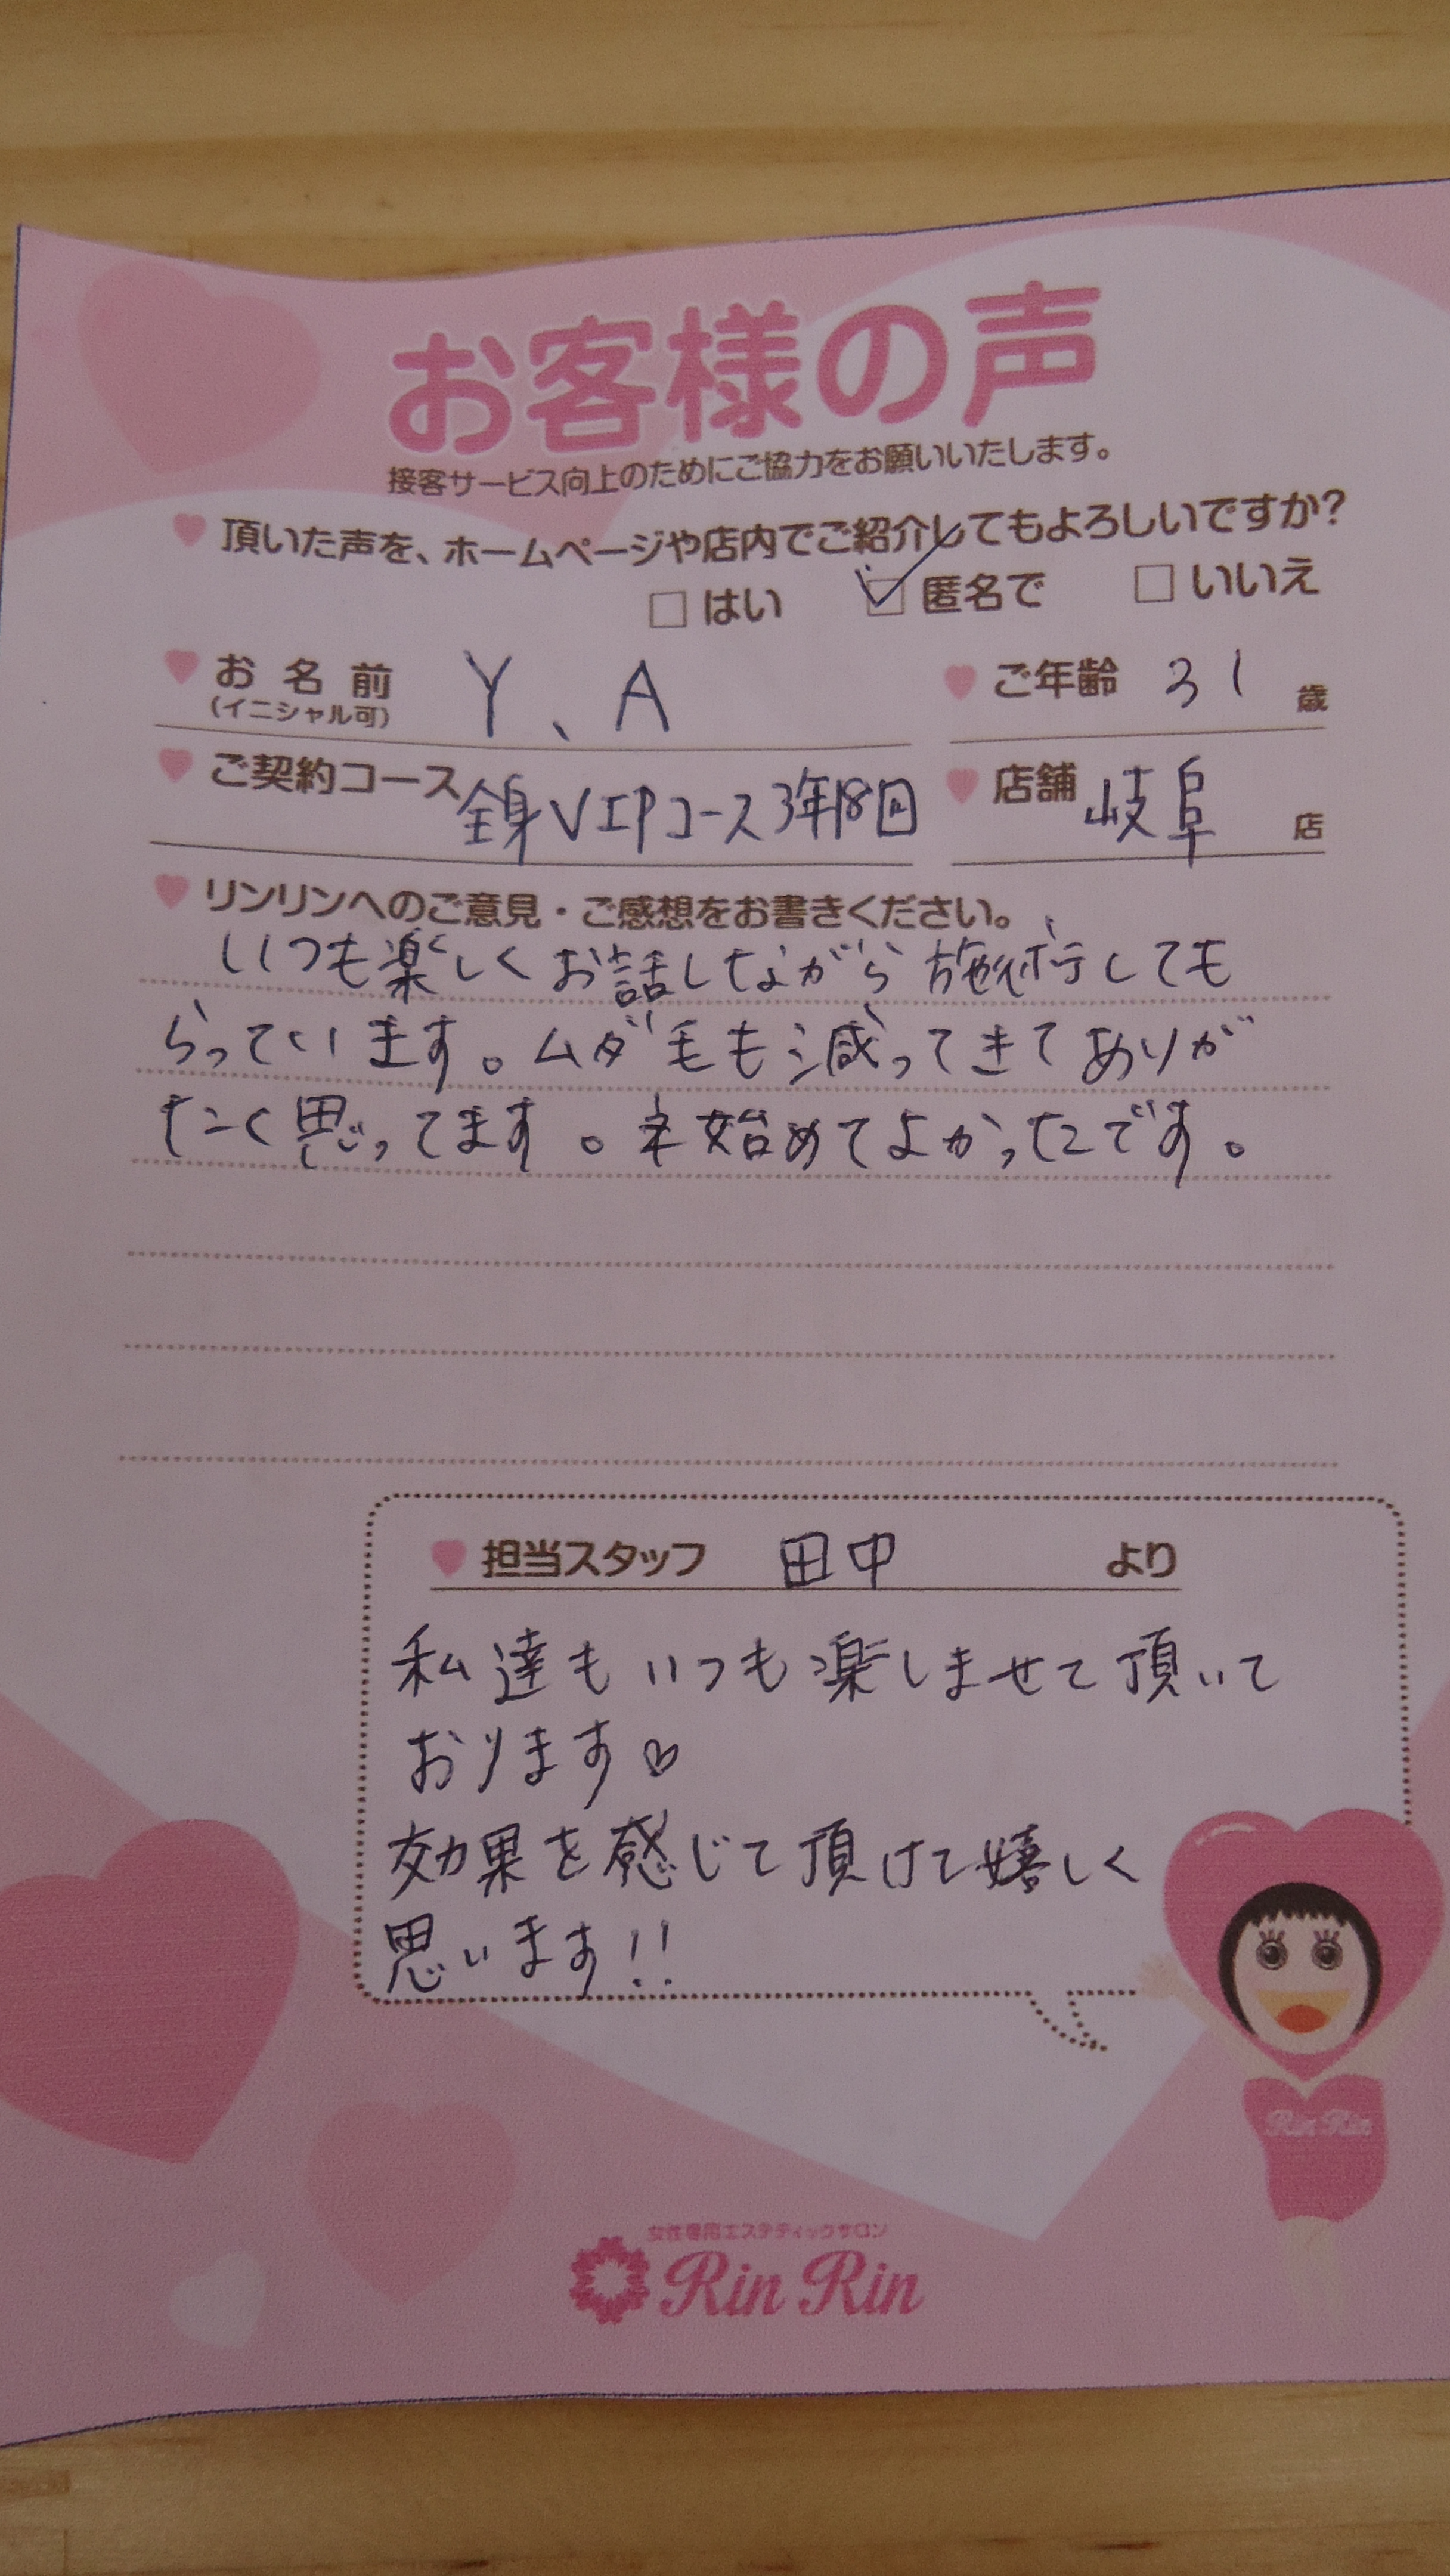 お客様の声
接客サービス向上のためにご協力をお願いいたします。
頂いた声を、ホームページや店内でご紹介してもよろしいですか?
はい 匿名で いいえ
お名前 Y、A ご年齢 31 歳
(イニシャル可)
ご契約コース 全身VIPコース3年18回 店舗 岐阜 店
リンリンへのご意見・ご感想をお書きください。
いつも楽しくお話しながら施術しても
らっています。ムダ毛も減ってきてありが
たく思ってます。始めてよかったです。
担当スタッフ 田中 より
私達もいつも楽しませて頂いて
おります♡
効果を感じて頂けて嬉しく
思います!!
Rin Rin
女性専用エステティックサロン
Rin Rin